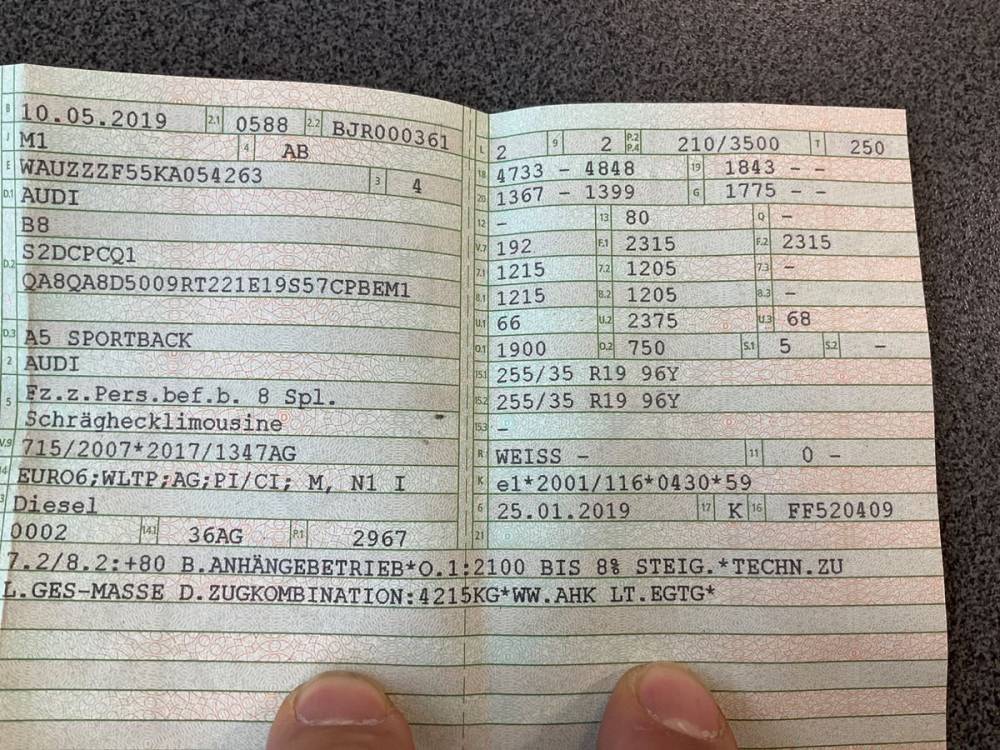 B 10.05.2019 2.1 0588 2.2 BJR000361
J M1 4 AB
E WAUZZZF55KA054263 3 4
D.1 AUDI
B8
D.2 S2DCPCQ1
QA8QA8D5009RT221E19S57CPBEM1
D.3 A5 SPORTBACK
2 AUDI
5 Fz.z.Pers.bef.b. 8 Spl.
Schräghecklimousine
V.9 715/2007*2017/1347AG
14 EURO6;WLTP;AG;PI/CI; M, N1 I
3 Diesel
0002 14.1 36AG P.1 2967
L 2 9 2 P.2 P.4 210/3500 T 250
18 4733 - 4848 19 1843 - -
20 1367 - 1399 G 1775 - -
12 - 13 80 Q -
V.7 192 F.1 2315 F.2 2315
7.1 1215 7.2 1205 7.3 -
8.1 1215 8.2 1205 8.3 -
U.1 66 U.2 2375 U.3 68
O.1 1900 O.2 750 S.1 5 S.2 -
15.1 255/35 R19 96Y
15.2 255/35 R19 96Y
15.3 -
R WEISS - 11 0 -
K e1*2001/116*0430*59
6 25.01.2019 17 K 16 FF520409
21
7.2/8.2:+80 B.ANHÄNGEBETRIEB*O.1:2100 BIS 8% STEIG.*TECHN.ZU
L.GES-MASSE D.ZUGKOMBINATION:4215KG*WW.AHK LT.EGTG*